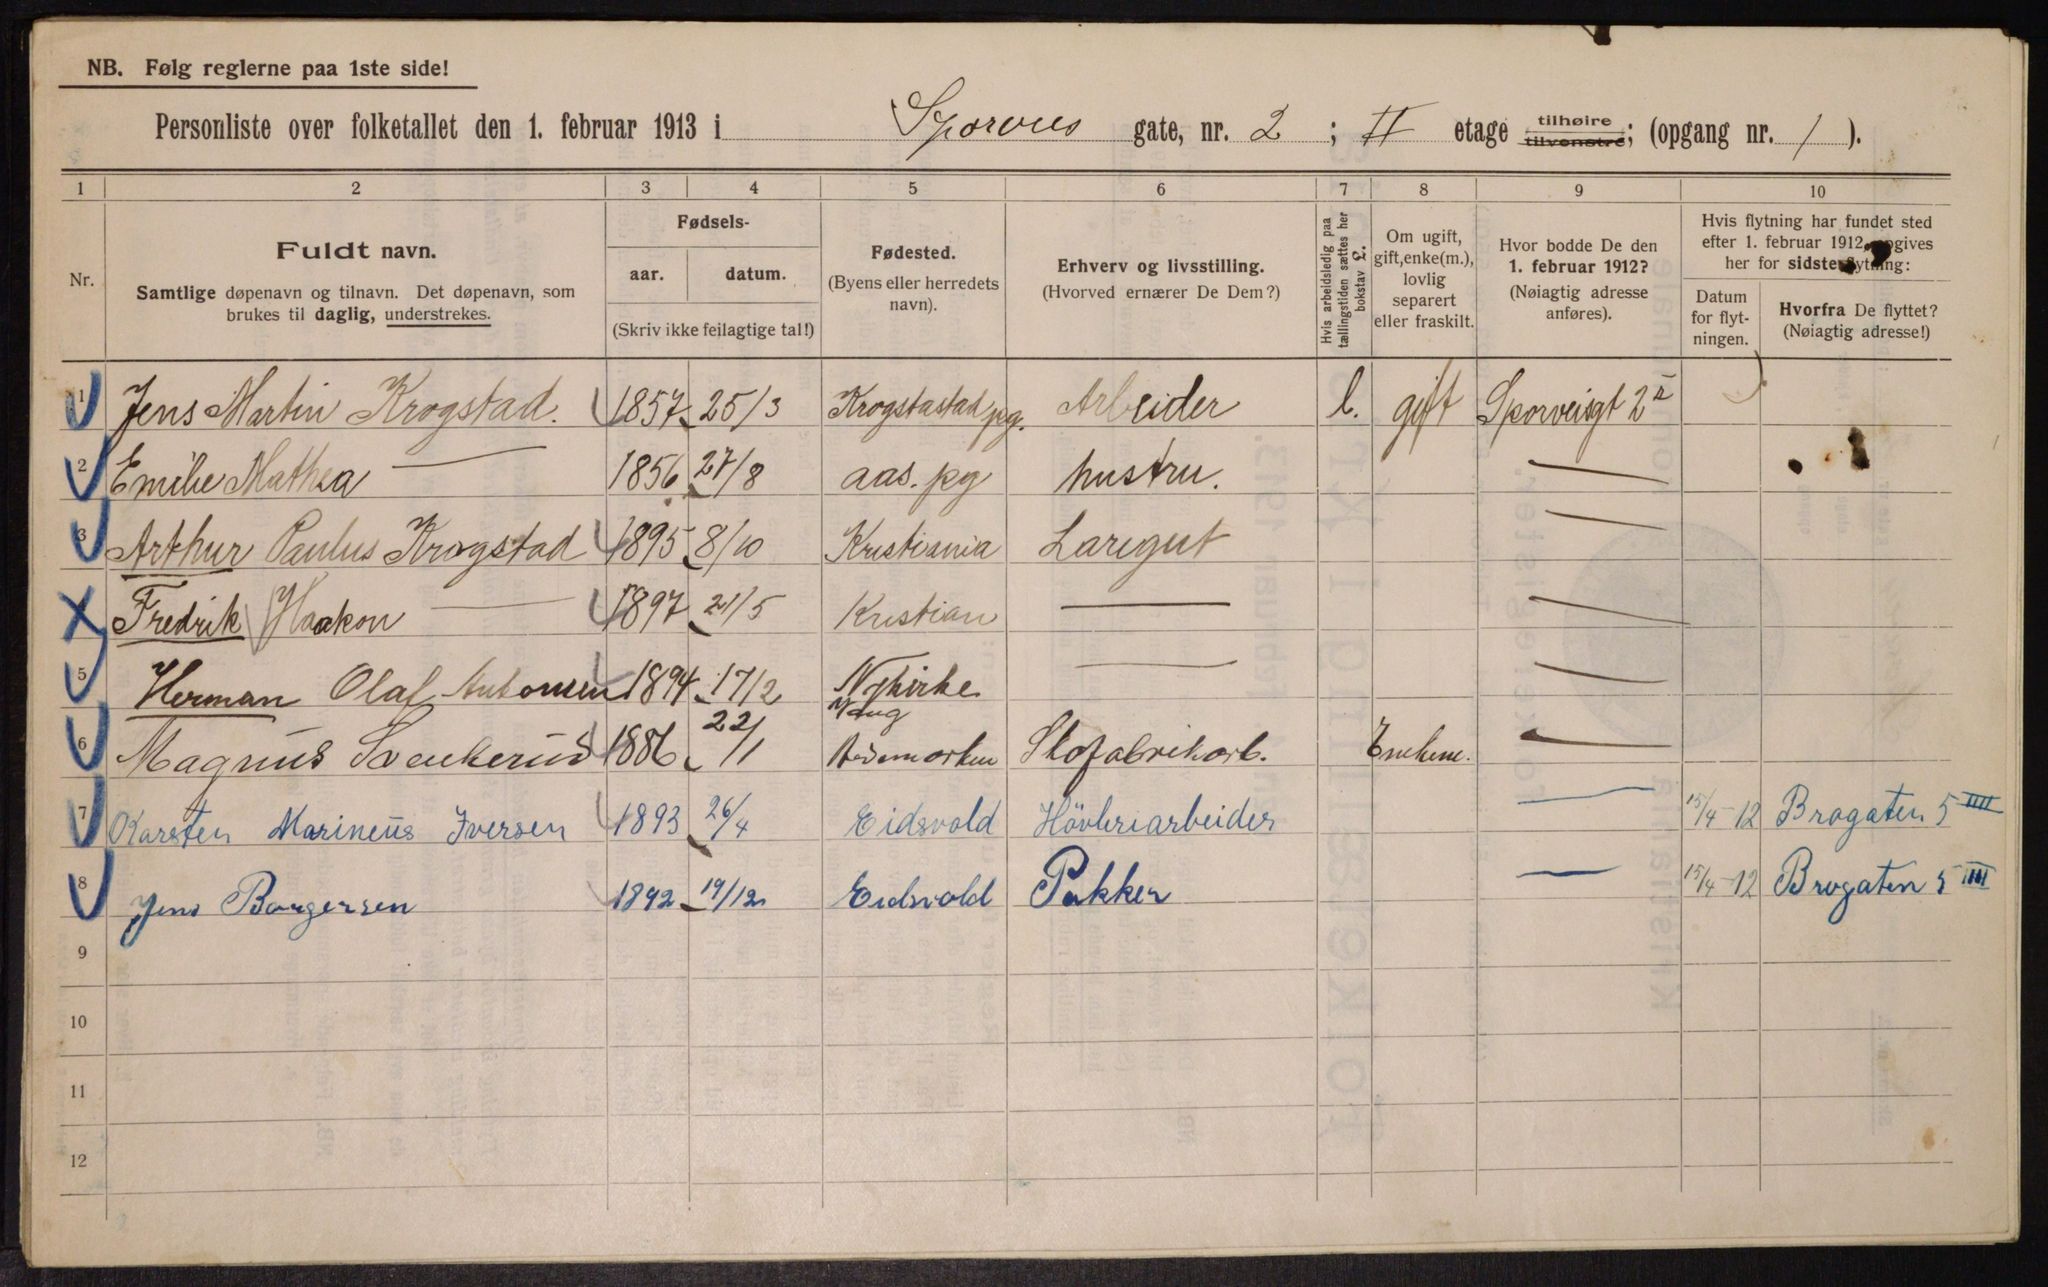 NB. Følg reglerne paa 1ste side!
Personliste over folketallet den 1. februar 1913 i Sporveis gate, nr. 2 ; II etage tilhøire tilvenstre; (opgang nr. 1 ).
1 2 3 4 5 6 7 8 9 10
Nr.
Fuldt navn.
Samtlige døpenavn og tilnavn. Det døpenavn, som
brukes til daglig, understrekes.
Fødsels-
aar. datum.
(Skriv ikke feilagtige tal!)
Fødested.
(Byens eller herredets
navn).
Erhverv og livsstilling.
(Hvorved ernærer De Dem?)
Hvis arbeidsledig paa
tællingstiden sættes her
bokstav £.
Om ugift,
gift, enke(m.),
lovlig
separert
eller fraskilt.
Hvor bodde De den
1. februar 1912?
(Nøiagtig adresse
anføres).
Hvis flytning har fundet sted
efter 1. februar 1912, opgives
her for sidste flytning:
Datum
for flyt-
ningen.
Hvorfra De flyttet?
(Nøiagtig adresse!)
1 Jens Martin Krogstad. 1857 25/3 Krogstastad pg. Arbeider l. gift Sporveisgt 2 II
2 Emilie Mathea — 1856 27/8 aas. pg hustru. —
3 Arthur Paulus Krogstad 1895 8/10 Kristiania —
Fredrik Haakon — 1897 21/5 Kristian — —
5 Herman Olaf Antonsen 1894 17/2 Nykirke — —
6 Magnus Svenkerud 1886 22/1 Skofabrikarb. Enkem. —
7 Karsten Marineüs Iversen 1893 26/4 Eidsvold Hövleriarbeider — 15/4-12 Brogaten 5 IIII
8 Jens Borgersen 1892 19/12 Eidsvold Pakker — 15/4-12 Brogaten 5 IIII
9
10
11
12